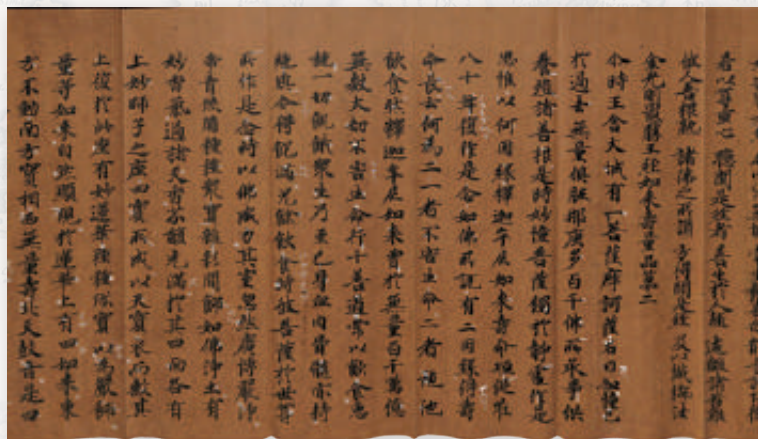 若以尊重心 聽聞是經者 善生於人趣 遠離諸苦難
彼人善根熟 諸佛之所讚 方得聞是經 及以懺悔法
金光明最勝王經如來壽量品第二
尒時王舍大城有一菩薩摩訶薩名曰妙幢已
於過去無量俱胝那庾多百千佛所承事供
養殖諸善根是時妙幢菩薩獨於靜處作是
思惟以何因緣釋迦牟尼如來壽命短促唯
八十年復作是念如佛所說有二因緣得壽
命長云何為二一者不害生命二者施他
飲食然釋迦牟尼如來曾於無量百千萬億
無數大劫不害生命行十善道常以飲食惠
施一切飢餓眾生乃至己身血肉骨髓亦持
施與令得飽滿況餘飲食時彼菩薩於世尊
所作是念時以佛威力其室忽然廣博嚴淨
帝青琉璃種種眾寶雜彩間飾如佛淨土有
妙香氣過諸天香芬馥充滿於其四面各有
上妙師子之座四寶所成以天寶衣而敷其
上復於此座有妙蓮華種種珍寶以為嚴飾
量等如來自然顯現於蓮華上有四如來東
方不動南方寶相西無量壽北天鼓音是四